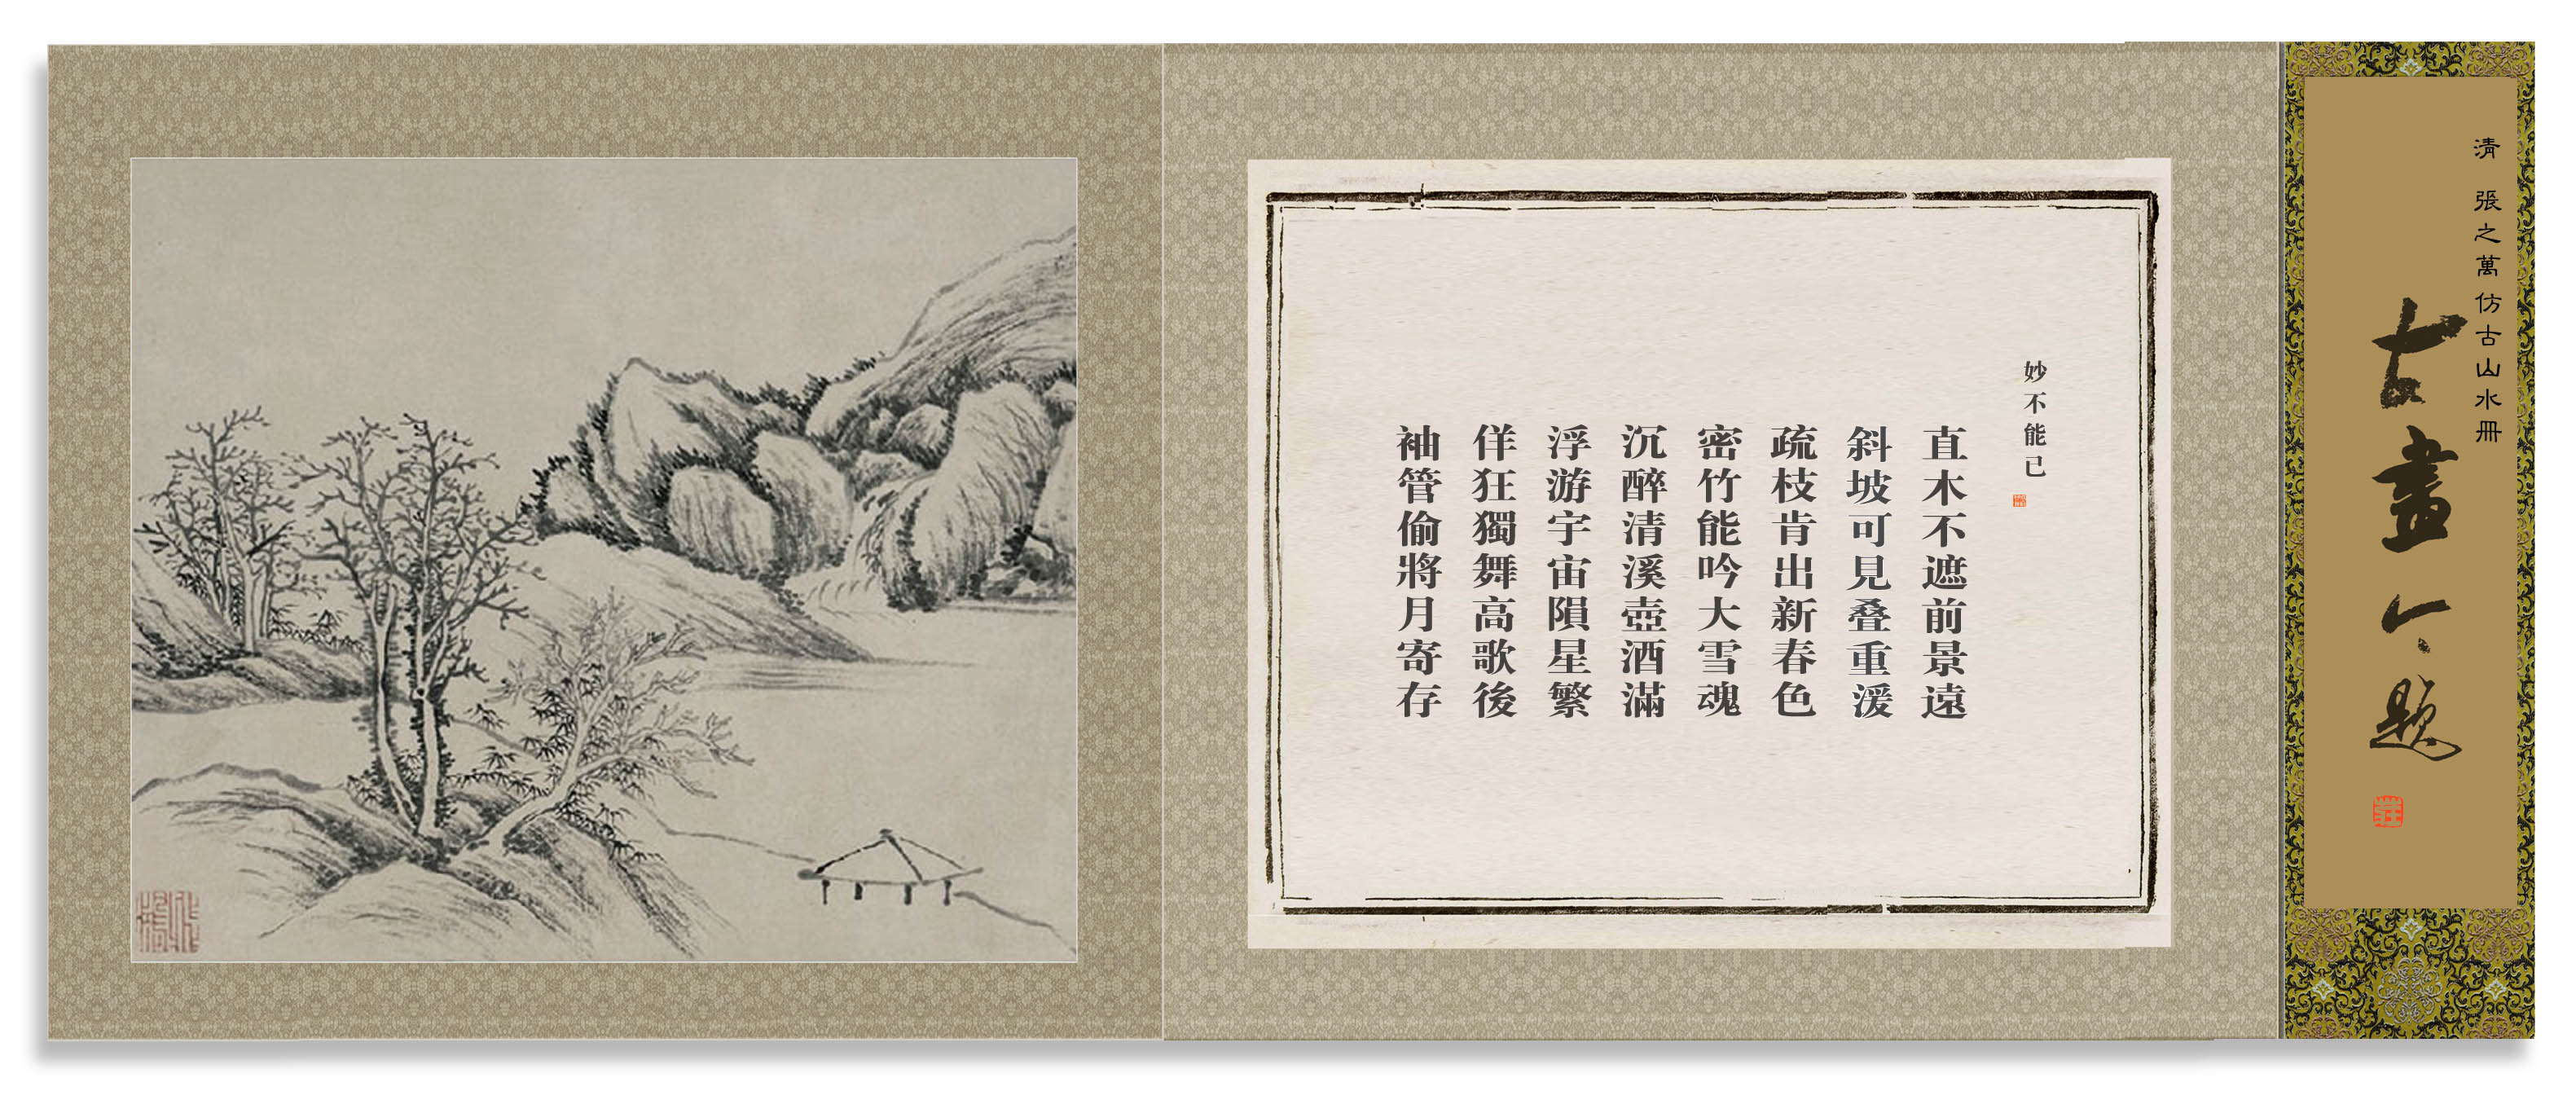 清 張之萬仿古山水冊
古畫今題
妙不能已
直木不遮前景遠
斜坡可見叠重湲
疏枝肯出新春色
密竹能吟大雪魂
沉醉清溪壺酒滿
浮游宇宙隕星繁
佯狂獨舞高歌後
袖管偷將月寄存